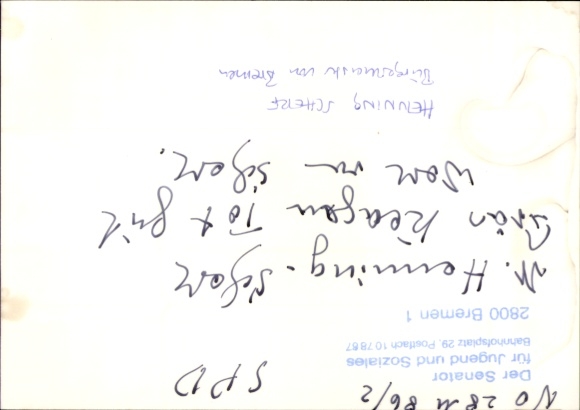 NO 28 M 86/2
Der Senator
für Jugend und Soziales
Bahnhofsplatz 29, Postfach 10 78 67
2800 Bremen 1
SPD
Henning - Scherf
Reagan Tot
HENNING SCHERF
Bürgermeister von Bremen